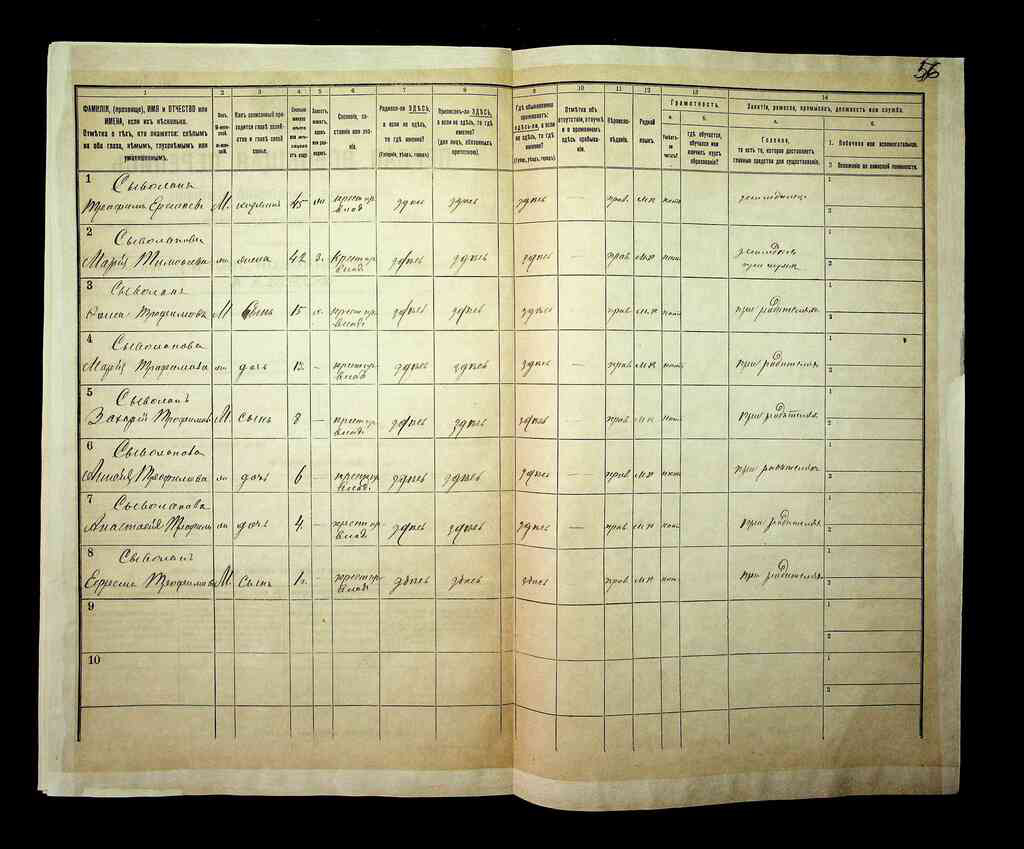 56
1 2 3 4 5 6 7 8 9 10 11 12 13 14
ФАМИЛІЯ, (прозвище), ИМЯ и ОТЧЕСТВО или
ИМЕНА, если ихъ нѣсколько.
Отмѣтка о тѣхъ, кто окажется: слѣпымъ
на оба глаза, нѣмымъ, глухонѣмымъ или
умалишеннымъ.
Полъ.
М-мужской.
ж-женск.
Какъ записанный при-
ходится главѣ хозяй-
ства и главѣ своей
семьи.
Сколько
минуло
лѣтъ
Холостъ,
женатъ,
вдовъ
или раз-
веденъ.
Сословіе, со-
стояніе или зва-
ніе.
Родился-ли ЗДѢСЬ,
а если не здѣсь,
то гдѣ именно?
(Губернія, уѣздъ, городъ)
Приписанъ-ли ЗДѢСЬ,
а если не здѣсь, то гдѣ
именно?
(для лицъ, обязанныхъ
припискою).
Гдѣ обыкновенно
проживаетъ:
здѣсь-ли, а если
не здѣсь, то гдѣ
именно?
(Губерн., уѣздъ, городъ)
Отмѣтка объ
отсутствіи, отлучкѣ
и о временномъ
здѣсь пребыва-
ніи.
Вѣроиспо-
вѣданіе.
Родной
языкъ.
Грамотность.
а.
Умѣетъ-
ли
читать?
б.
гдѣ обучается,
обучался или
кончилъ курсъ
образованія?
Занятіе, ремесло, промыселъ, должность или служба.
а.
Главное,
то есть то, которое доставляетъ
главныя средства для существованія.
б.
1. Побочное или вспомогательное.
2. Положеніе по воинской повинности.
1 Сыволапъ
Трофимъ М. хозяинъ 45 крестьян. здѣсь здѣсь здѣсь — прав. нѣтъ земледѣлец 1 2
2 Сыволапова
Марія жена 42 з. крестьян. здѣсь здѣсь здѣсь — прав нѣтъ при мужѣ 1 2
3 Сыволапъ
Трофимовъ М сынъ 15 крестьян. здѣсь здѣсь здѣсь — прав. нѣтъ при родителях 1 2
4 Сыволапова
Марія Трофимова дочь — крестьян. здѣсь здѣсь здѣсь — прав нѣтъ при родителях 1 2
5 Сыволапъ
Захарій Трофимов М. сынъ 8 — крестьян. здѣсь здѣсь здѣсь — прав нѣтъ при родителях 1 2
6 Сыволапова
Трофимова дочь 6 — крестьян. здѣсь здѣсь здѣсь — прав нѣтъ при родителях 1 2
7 Сыволапова
Анастасія Трофим дочь 4. — крестьян. здѣсь здѣсь здѣсь — прав нѣтъ при родителях 1 2
8 Сыволапъ
Трофимовъ М. Сынъ — крестьян. здѣсь здѣсь здѣсь прав нѣтъ при родителях 1 2
9 1 2
10 1 2